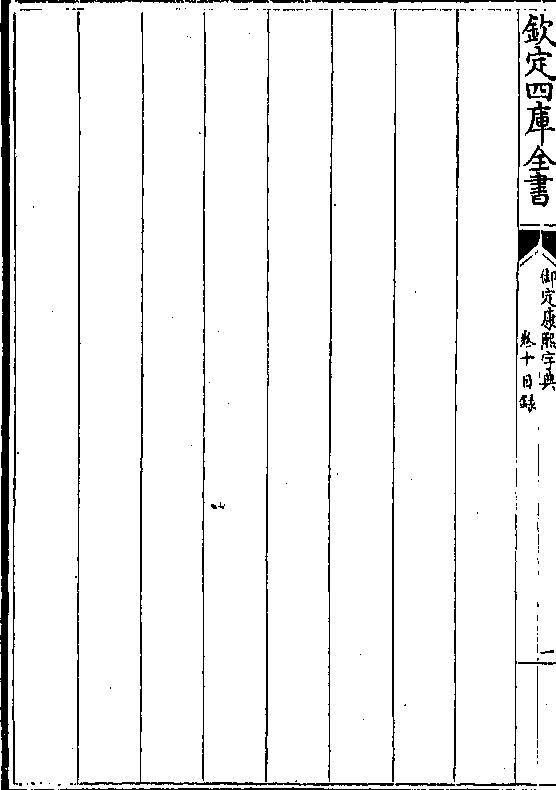 欽定四庫全書
御定康熙字典
卷十目錄
一